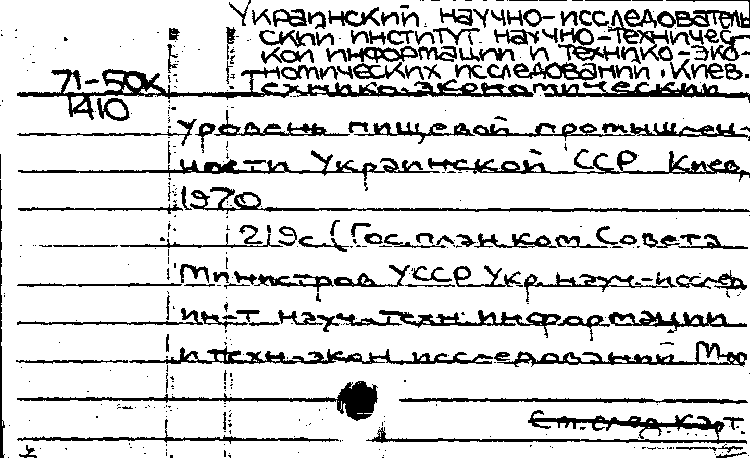 Украинский научно-исследователь
ский институт научно-техничес-
кой информации и технико-эко-
номических исследований. Киев.
71-50к Технико-экономический
1410
уровень пищевой промышлен-
ности Украинской ССР Киев,
1970.
219с. (Гос. план. ком. Совета
Министров УССР Укр. науч.-исслед
ин-т науч.-техн. информации
и техн.-экон. исследований М-во
См. след. карт.